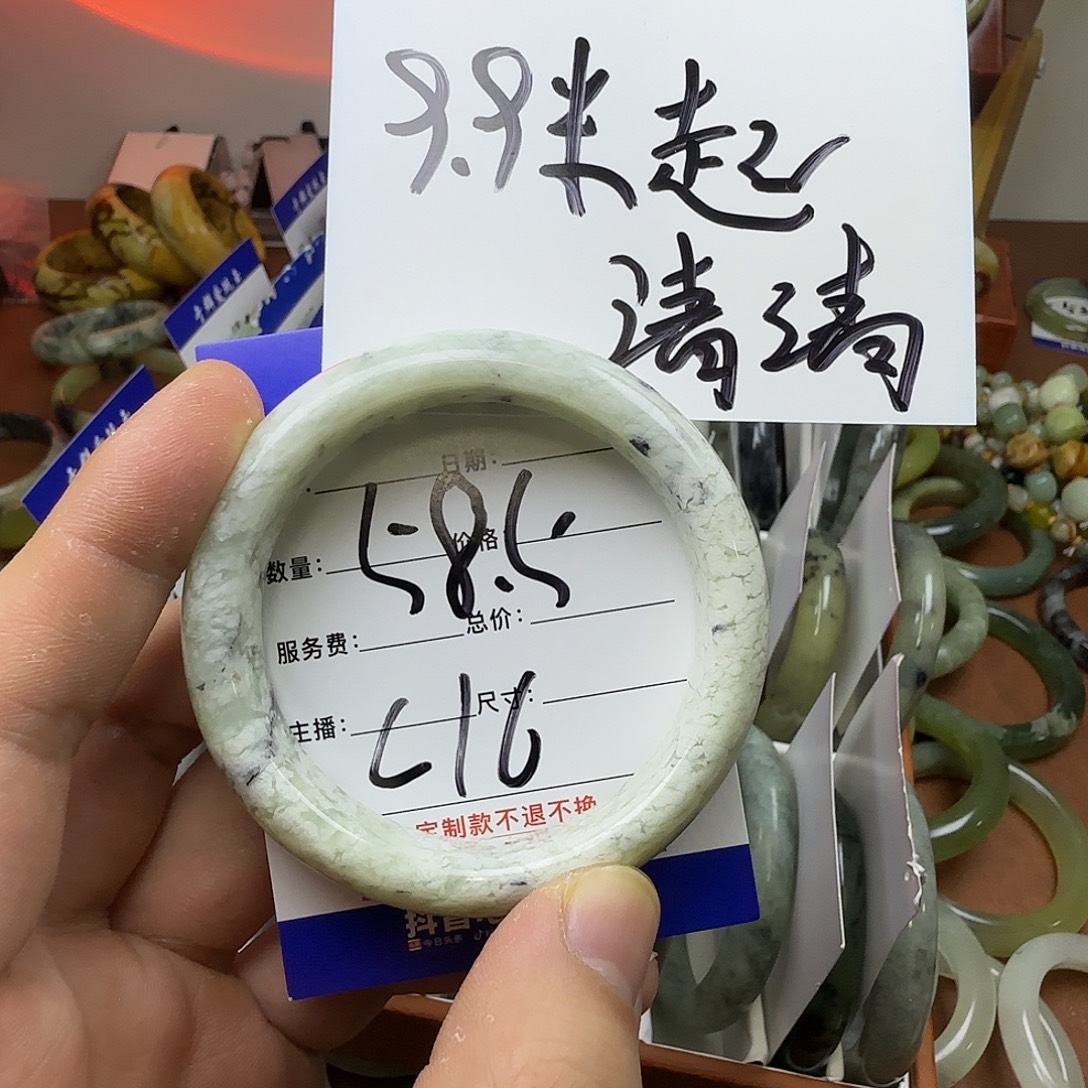 9.9米起
清清
日期：
58.5
数量：
价格
服务费：
总价：
主播：
尺寸：
C16
定制款不退不换
抖音
今日头条